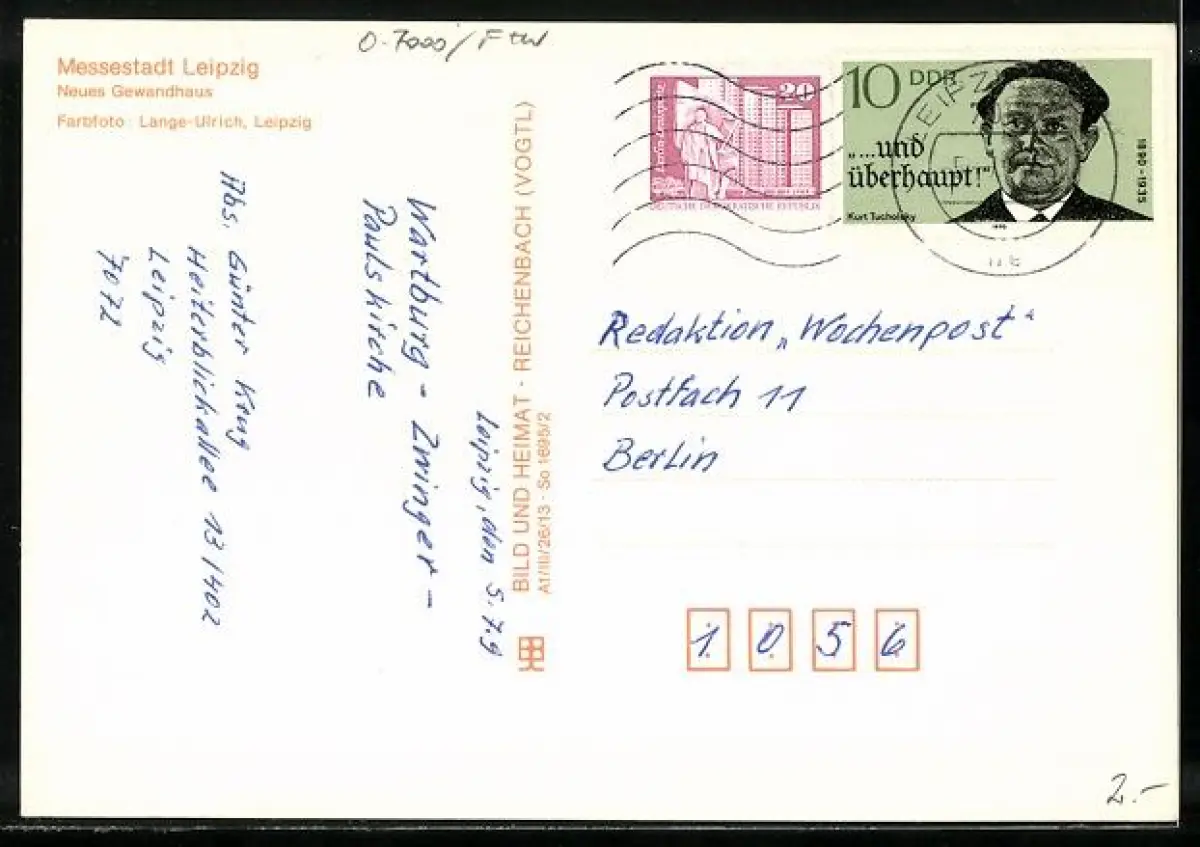 O-7000/
Messestadt Leipzig
Neues Gewandhaus
Farbfoto: Lange-Ulrich, Leipzig
Abs. Günter Krug
Heiterblickallee 13/402
Leipzig
7072
Wartburg - Zwinger -
Paulskirche
Leipzig, den 5.7.9
BILD UND HEIMAT · REICHENBACH (VOGTL)
A1/III/26/13 · So 1695/2
20
DEUTSCHE DEMOKRATISCHE REPUBLIK
10 DDR
„...und
überhaupt!"
Kurt Tucholsky
1890-1935
LEIPZIG
Redaktion „Wochenpost"
Postfach 11
Berlin
1 0 5 6
2.-